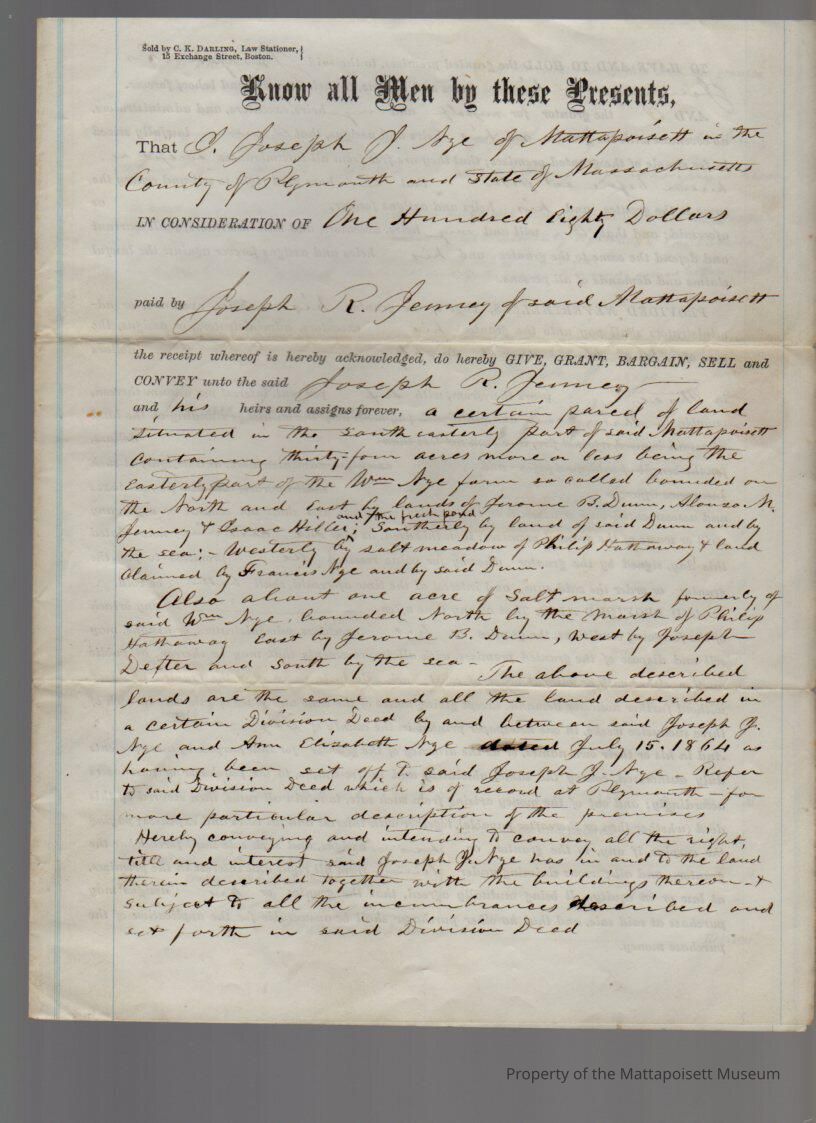 Sold by C. K. DARLING, Law Stationer,
15 Exchange Street, Boston.
Know all Men by these Presents,
That I, Joseph J. Nye of Mattapoisett in the
County of Plymouth and State of Massachusetts
IN CONSIDERATION OF One Hundred Eighty Dollars
paid by Joseph R. Jenney of said Mattapoisett
the receipt whereof is hereby acknowledged, do hereby GIVE, GRANT, BARGAIN, SELL and
CONVEY unto the said Joseph R. Jenney
and his heirs and assigns forever, a certain parcel of land
situated in the South easterly part of said Mattapoisett
containing thirty-four acres more or less being the
Easterly part of the Wm Nye farm so called bounded on
the North and East by lands of Jerome B. Dunn, Alonzo M.
and the fresh pond
Jenney & Isaac Hiller; Southerly by land of said Dunn and by
the sea; - Westerly by salt meadow of Philip Hathaway & land
Claimed by Francis Nye and by said Dunn.
Also about one acre of Salt marsh formerly of
said Wm Nye, bounded North by the Marsh of Philip
Hathaway East by Jerome B. Dunn, West by Joseph
Dexter and South by the sea - The above described
lands are the same and all the land described in
a certain Division Deed by and between said Joseph J.
Nye and Ann Elizabeth Nye dated July 15. 1864 as
having been set off to said Joseph J. Nye - Refer
to said Division Deed which is of record at Plymouth - for
more particular description of the premises
Hereby conveying and intending to convey all the right,
title and interest said Joseph J. Nye has in and to the land
therein described together with the buildings thereon - &
subject to all the incumbrances described and
set forth in said Division Deed
Property of the Mattapoisett Museum